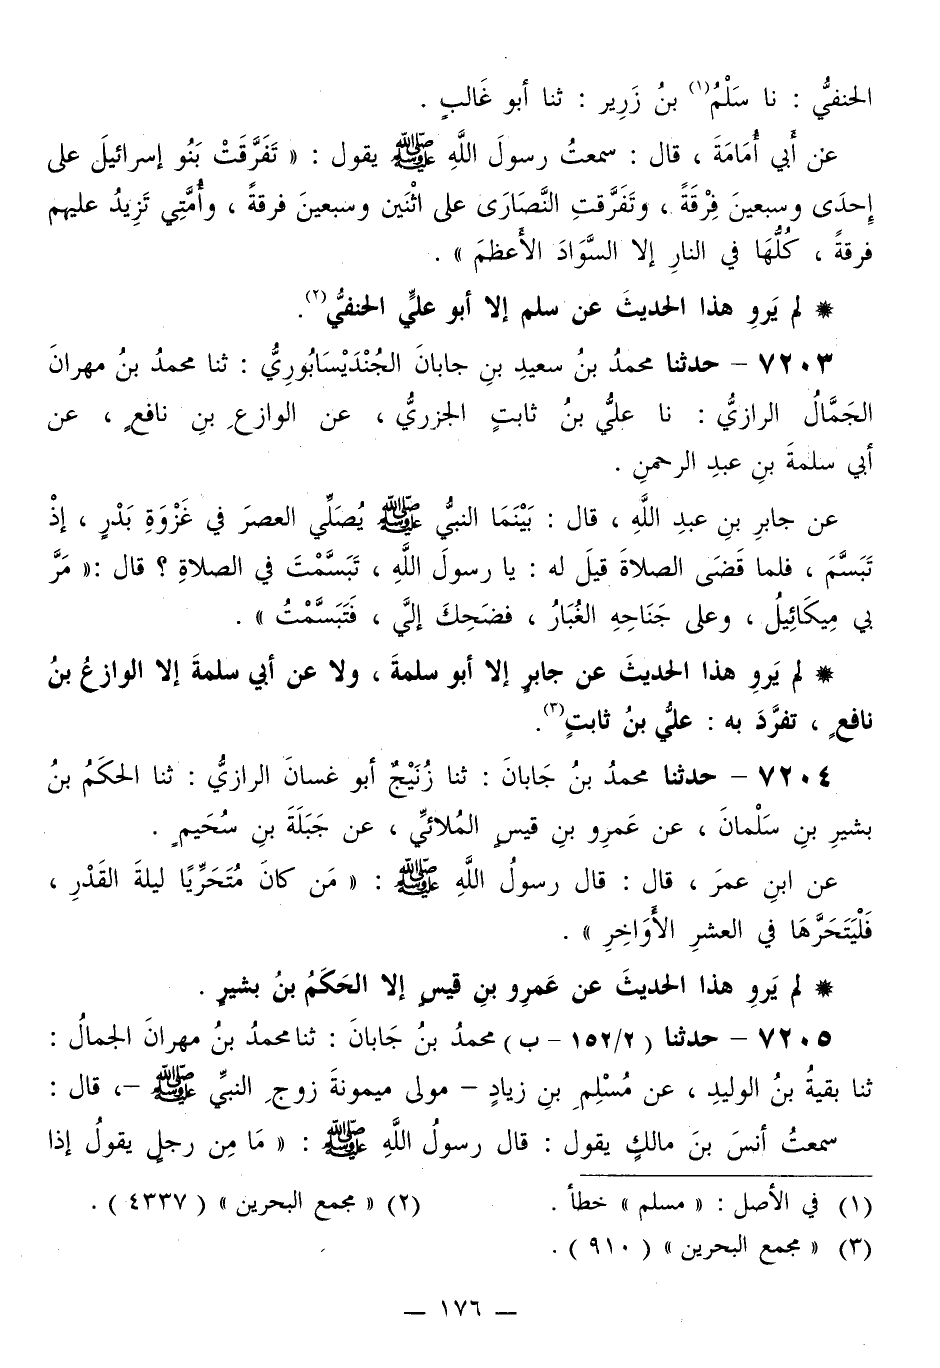 الحنفيُّ : نا سَلْمُ(١) بنُ زَرِير : ثنا أبو غَالبٍ .
عن أَبي أُمَامَةَ ، قال : سمعتُ رسولَ اللَّهِ ﷺ يقول : « تَفَرَّقَتْ بَنُو إسرائيلَ على
إحدَى وسبعينَ فِرْقَةً ، وتَفَرَّقتِ النَّصَارَى على اثْنَين وسبعينَ فرقةً ، وأُمَّتِي تَزِيدُ عليهم
فرقةً ، كُلُّهَا في النارِ إلا السَّوَادَ الأَعظمَ » .
* لم يَروِ هذا الحديثَ عن سلم إلا أبو عليٍّ الحنفيُّ(٢).
٧٢٠٣ – حدثنا محمدُ بنُ سعيدِ بنِ جابانَ الجُنْدَيْسَابُورِيُّ : ثنا محمدُ بنُ مهرانَ
الجَمَّالُ الرازيُّ : نا عليُّ بنُ ثابتٍ الجزريُّ ، عن الوازعِ بنِ نافعٍ ، عن
أبي سلمةَ بنِ عبدِ الرحمنِ .
عن جابرِ بنِ عبدِ اللَّهِ ، قال : بَيْنَمَا النبيُّ ﷺ يُصَلِّي العصرَ في غَزْوَةِ بَدْرٍ ، إذْ
تَبَسَّمَ ، فلما قَضَى الصلاةَ قيلَ له : يا رسولَ اللَّهِ ، تَبَسَّمْتَ في الصلاةِ ؟ قال :« مَرَّ
بي مِيكَائِيلُ ، وعلى جَنَاحِهِ الغُبَارُ ، فضَحِكَ إليَّ ، فَتَبَسَّمْتُ » .
* لم يَروِ هذا الحديثَ عن جابرٍ إلا أبو سلمةَ ، ولا عن أبي سلمةَ إلا الوازعُ بنُ
نافعٍ ، تفرَّدَ به : عليُّ بنُ ثابتٍ(٣).
٧٢٠٤ – حدثنا محمدُ بنُ جَابانَ : ثنا زُنَيْجٌ أبو غسانَ الرازيُّ : ثنا الحكَمُ بنُ
بشيرِ بنِ سَلْمانَ ، عن عَمرِو بنِ قيسٍ المُلائيِّ ، عن جَبَلَةَ بنِ سُحَيمٍ .
عن ابنِ عمرَ ، قال : قال رسولُ اللَّهِ ﷺ : « مَن كانَ مُتَحَرِّيًا ليلةَ القَدْرِ ،
فَلْيَتَحَرَّهَا في العشرِ الأَوَاخِرِ » .
* لم يَروِ هذا الحديثَ عن عَمرِو بنِ قيسٍ إلا الحَكَمُ بنُ بشيرٍ .
٧٢٠٥ – حدثنا ( ١٥٢/٢ – ب ) محمدُ بنُ جَابانَ : ثنا محمدُ بنُ مهرانَ الجمالُ :
ثنا بقيةُ بنُ الوليدِ ، عن مُسْلِمِ بنِ زيادٍ – مولى ميمونةَ زوجِ النبيِّ ﷺ –، قال :
سمعتُ أنسَ بنَ مالكٍ يقول : قال رسولُ اللَّهِ ﷺ : « مَا مِن رجلٍ يقولُ إذا
(١) في الأصل : « مسلم » خطأ . (٢) « مجمع البحرين » ( ٤٣٣٧ ) .
(٣) « مجمع البحرين » ( ٩١٠ ) .
— ١٧٦ —